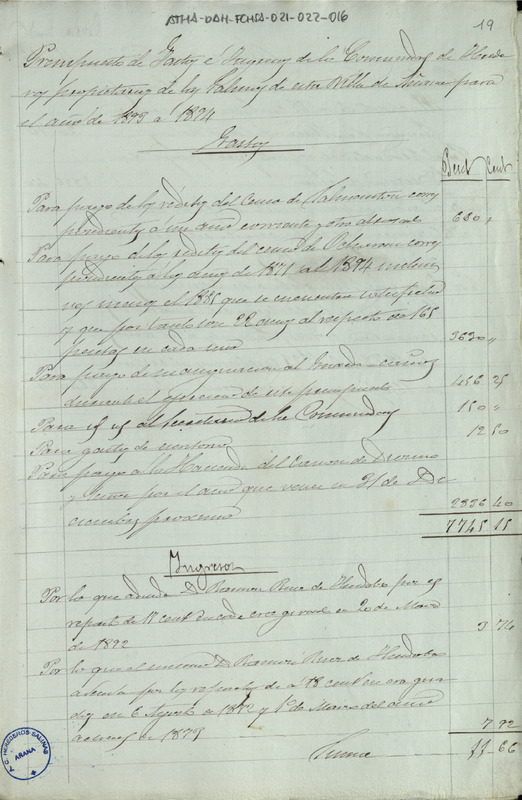 ATHA-DAH-FCHSA-021-022-016
19
Presupuesto de Gastos e Ingresos de la Comunidad de Herede
ros propietarios de las Salinas de esta Villa de Añana para
el año de 1893 a 1894
Gastos
Pent Cent
Para pago de los réditos del Censo de corres
pondientes á un año corriente y otro atrasado 680 "
Para pago á los réditos del censo de corres
pondientes a los años de 1871 al 1894 inclusi
ves menos el 1885 que se encuentra satisfecho
y que por tanto son 22 años al respecto de 165
pesetas en cada uno 3630 "
Para pago de al Guarda
durante el ejercicio de este presupuesto 456 25
Para id id al Secretario de la Comunidad 150 "
Para gastos de 12 50
Para pago a la Hacienda del Canon de
y por el año que vence en 31 de Di
ciembre próximo 2336 40
7745 15
Ingresos
Por lo que adeuda D. Ramon Ruiz de por el
reparto de 17 cent en cada era girado en 20 de Marzo
de 1892 3 74
Por lo que el mismo D. Ramon Ruiz de
adeuda por los repartos de a 18 cent en era gira
dos en 6 Agosto de 1872 y 1º de Marzo del año
de 1873 7 92
Suma 11-66
C.G. HEREDEROS SALINAS
AÑANA